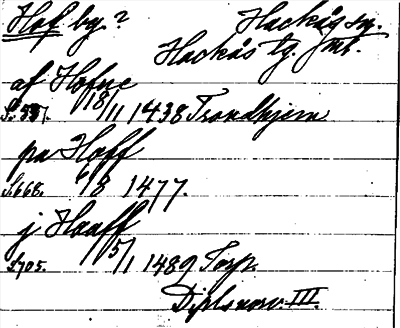 Hof by? Hackås sn.
Hackås tg. Jmt.
af Hofne
S. 531. 18/11 1438 Trondhjem
pa Hoff
S. 668. 6/8 1477.
j Hoaff
S. 705. 5/1 1489 Torp.
Dipl. norv. III.